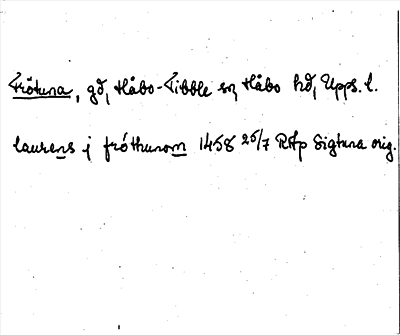 Frötuna, gd, Håbo-Tibble sn, Håbo hd, Upps. l.
laurens j fróthunom 1458 25/7 RAp Sigtuna orig.